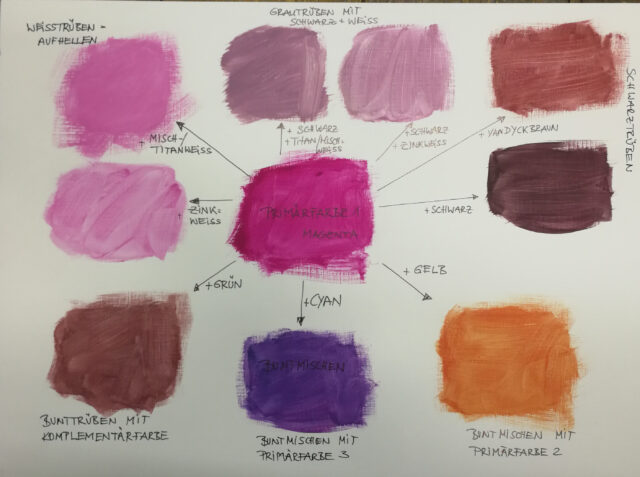 WEISSTRÜBEN =
AUFHELLEN
GRAUTRÜBEN MIT
SCHWARZ + WEISS
SCHWARZTRÜBEN
+ MISCH-/
TITANWEISS
+ SCHWARZ
+ TITAN/MISCH-
WEISS
+ SCHWARZ
+ ZINKWEISS
+ VANDYCKBRAUN
+ ZINK=
WEISS
PRIMÄRFARBE 1
MAGENTA
+ SCHWARZ
+ GRÜN
+ CYAN
+ GELB
BUNTMISCHEN
BUNTTRÜBEN MIT
KOMPLEMENTÄRFARBE
BUNTMISCHEN MIT
PRIMÄRFARBE 3
BUNTMISCHEN MIT
PRIMÄRFARBE 2